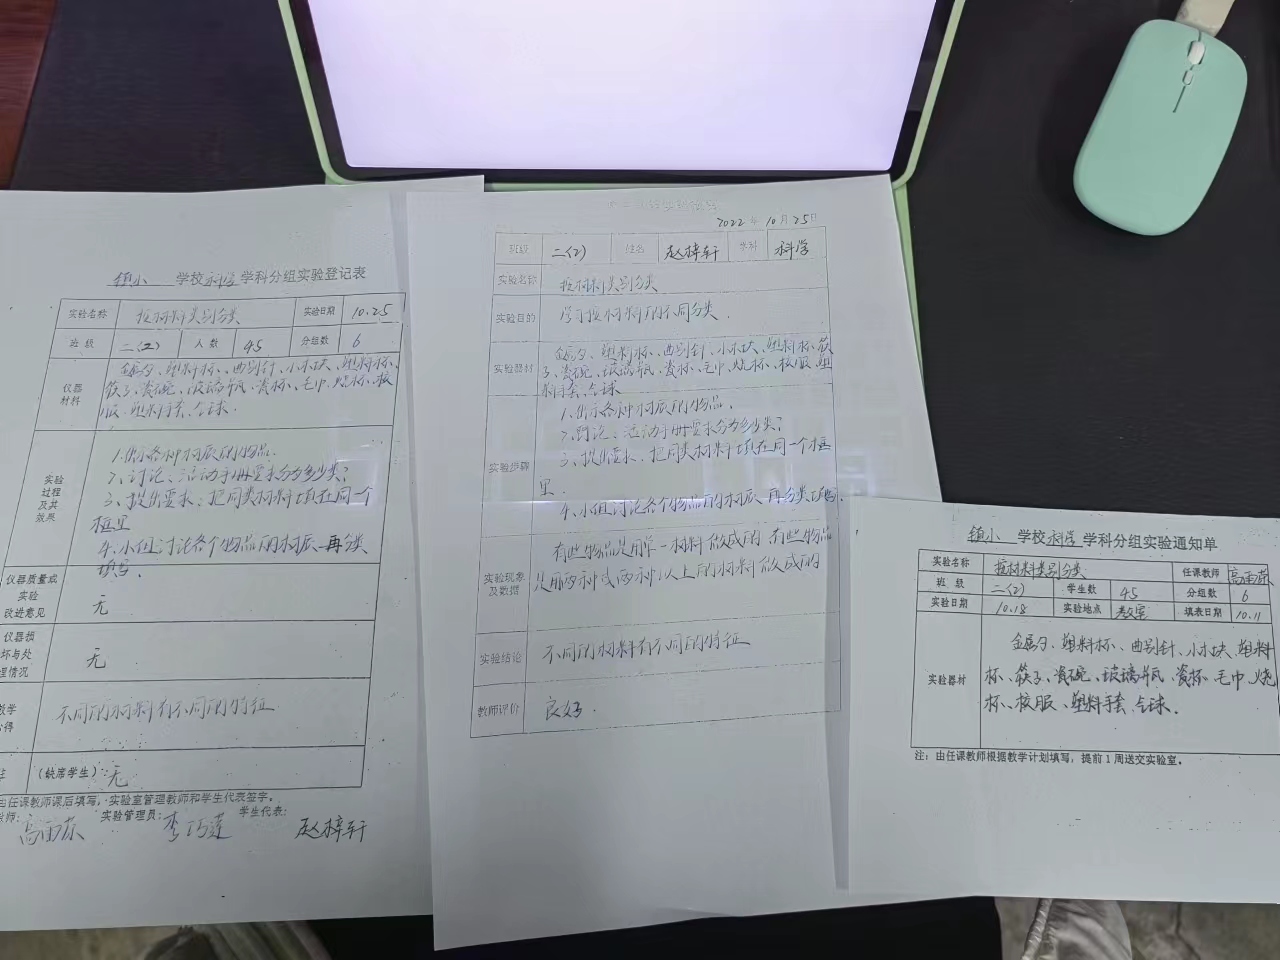 镇小 学校科学学科分组实验登记表
实验名称 按材料类别分类 实验日期 10.25
班 级 二(2) 人 数 45 分组数 6
仪器
材料
金属勺、塑料杯、曲别针、小木块、塑料杯、
筷子、瓷碗、玻璃瓶、瓷杯、毛巾、烧杯、校
服、塑料手套、仓球.
实验
过程
及其
效果
1.出示各种材质的物品.
2、讨论、活动手册要求分为多少类?
3、提出要求,把同类材料填在同一个
框里
4、小组讨论各个物品的材质、再分类
填写.
仪器质量或
实验
改进意见
无
仪器损
坏与处
理情况
无
不同的材料有不同的特征
(缺席学生): 无
由任课教师课后填写,实验室管理教师和学生代表签字。
教师: 高雨荪 实验管理员: 李巧莲 学生代表: 赵梓轩
2022年10月25日
班级 二(2) 姓名 赵梓轩 学科 科学
实验名称 按材料类别分类
实验目的 学习按材料的不同分类.
实验器材
金属勺、塑料杯、曲别针、小木块、塑料杯、筷
子、瓷碗、玻璃瓶、瓷杯、毛巾、烧杯、校服、塑
料手套、仓球
实验步骤
1.出示各种材质的物品.
2、讨论、活动手册要求分为多少类?
3、提出要求,把同类材料填在同一个框
里.
4、小组讨论各个物品的材质、再分类填写.
实验现象
及数据
有些物品是用单一材料做成的 有些物品
是用两种或两种以上的材料做成的
实验结论 不同的材料有不同的特征
教师评价 良好.
镇小 学校科学学科分组实验通知单
实验名称 按材料类别分类 任课教师 高雨荪
班 级 二(2) 学生数 45 分组数 6
实验日期 10.18 实验地点 教室 填表日期 10.11
实验器材
金属勺、塑料杯、曲别针、小木块、塑料
杯、筷子、瓷碗、玻璃瓶、瓷杯、毛巾、烧
杯、校服、塑料手套、仓球.
注:由任课教师根据教学计划填写,提前1周送交实验室。